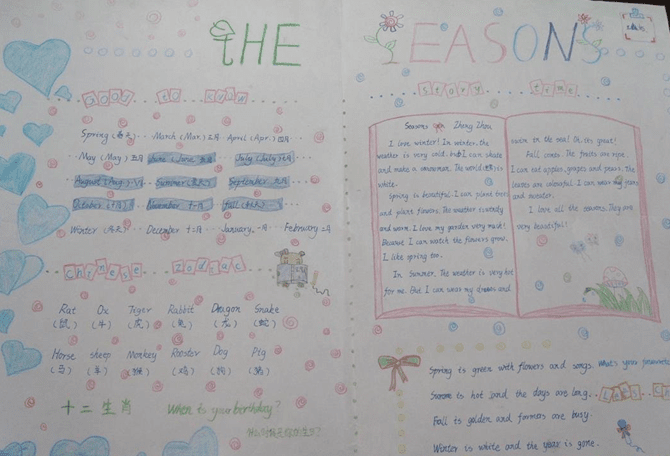 THE SEASONS
good to know
Spring (春天) March (Mar.) 三月 April (Apr.) 四月
May (May) 五月 June (June 六月 July (July) 七月
August (Aug.) 八月 Summer (夏天) September 九月
October 十月 November 十一月 fall (秋天)
Winter (冬天) December 十二月 January 一月 February 二月
chinese zodiac
Rat Ox Tiger Rabbit Dragon Snake
(鼠) (牛) (虎) (兔) (龙) (蛇)
Horse sheep Monkey Rooster Dog Pig
(马) (羊) (猴) (鸡) (狗) (猪)
十二生肖 When is your birthday?
story time
Seasons Zhang Zhen
I love winter! In winter, the
weather is very cold. but I can skate
and make a snowman. The world is in
white.
Spring is beautiful. I can plant trees
and plant flowers. The weather is windy
and warm. I love my garden very much!
Because I can watch the flowers grow.
I like spring too.
In Summer. The weather is very hot
for me. But I can wear my dresses and
swim in the sea! Oh, its great!
Fall comes. The fruits are ripe.
I can eat apples, grapes and pears. The
leaves are colourful. I can wear my jeans
and sweater.
I love all the seasons. They are
very beautiful!
Spring is green with flowers and songs. What's your favourite
Summer is hot and the days are long.
Fall is golden and farmers are busy.
Winter is white and the year is gone.